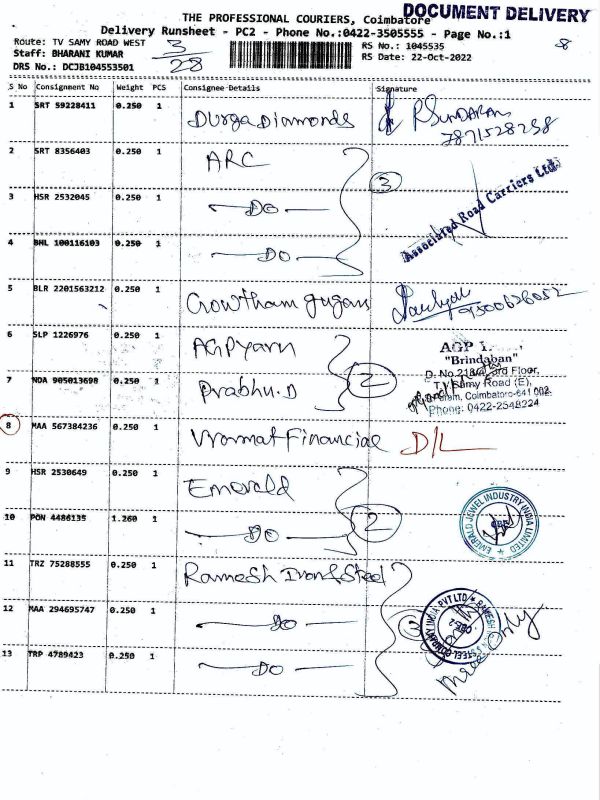 DOCUMENT DELIVERY
THE PROFESSIONAL COURIERS, Coimbatore
Delivery Runsheet - PC2 - Phone No.:0422-3505555 - Page No.:1
Route: TV SAMY ROAD WEST
3/28
RS No.: 1045535
8
Staff: BHARANI KUMAR
RS Date: 22-Oct-2022
DRS No.: DCJB104553501
S No Consignment No Weight PCS Consignee Details Signature
1 SRT 59228411 0.250 1 Durga Diamonds R SUNDARAM
7871528258
2 SRT 8356403 0.250 1 ARC
3
3 HSR 2532045 0.250 1 DO
Associated Road Carriers Ltd
4 BHL 100116103 0.250 1 DO
5 BLR 2201563212 0.250 1 Gowtham
6 SLP 1226976 0.250 1 AGP yarn
AGP
"Brindaban"
2
Floor,
7 NDA 905013698 0.250 1 Prabhu.D
T.V. Samy Road (E),
Coimbatore-641 002.
Phone: 0422-2548224
8 MAA 567384236 0.250 1 Financial D/L
9 HSR 2530649 0.250 1 Emerald
2
EMERALD JEWEL INDUSTRY INDIA LIMITED
CBE
10 PON 4486135 1.260 1 DO
11 TRZ 75288555 0.250 1 Ramesh Iron & Steel
12 MAA 294695747 0.250 1 DO
3
RAMESH IRON & STEEL COMPANY INDIA PVT LTD
Only
13 TRP 4789423 0.250 1 DO